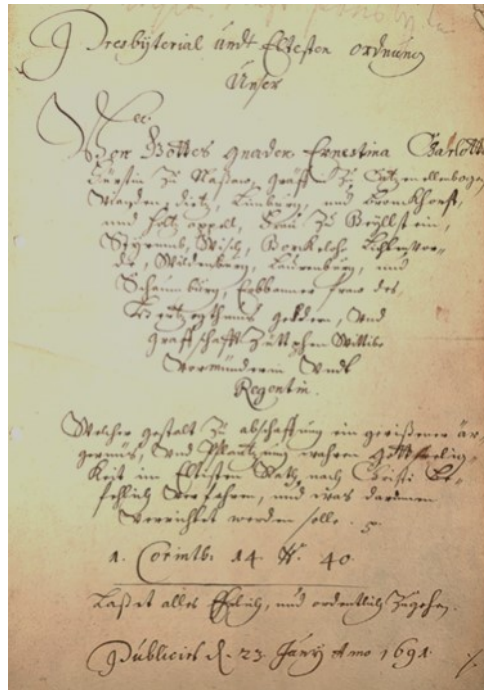 Presbÿterial undt Eltesten ordnung
Unser
Von Gottes gnaden Ernestina Charlotte
Fürstin zu Nassaw, gräff. zu Catzenellenbogen
Vianden, dietz, Limburg, und bronckhorst,
und Holtzappel, Fraw zu
Styrumb, Wisch, Borckeloh, Lichtenvor-
de, Wildenburg, Laurenburg, und
Schaumburg, Erbbanner fraw des,
Hertzogthumbs geldern, Und
graffschafft Zuttphen Wittibe
Vormünderin Undt
Regentin.
Welcher gestalt zu abschaffung ein gerissener är-
gernüs, Und Pflantzung wahren gottseelig-
keit im Eltisten Rath, nach Christi be-
fehlich verfahren, und was darinnen
verrichtet werden solle.
1. Corinth: 14. V. 40.
Lasset alles Ehrlich, und ordentlich zugehen.
Publicirt d. 23. Januÿ Anno 1691.